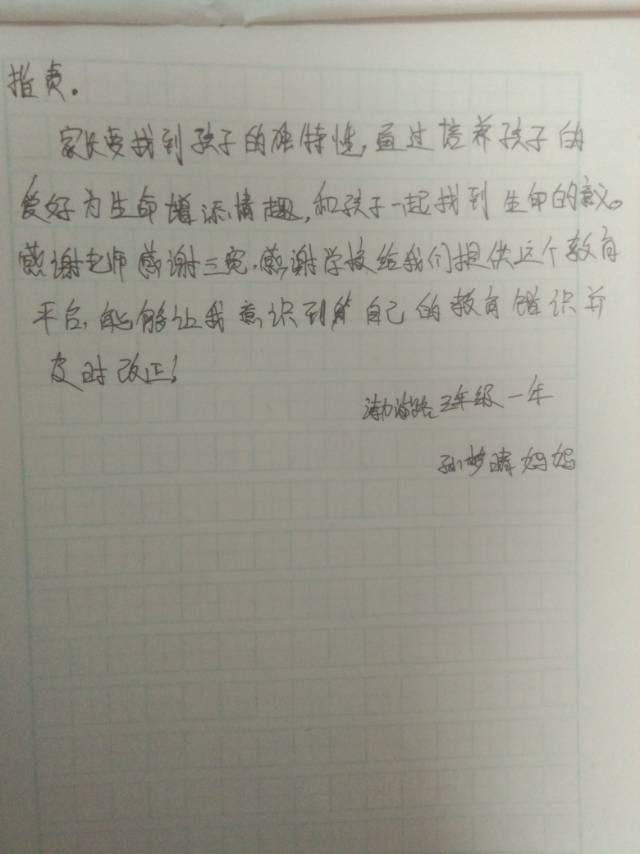 指责。
家长要找到孩子的独特性,通过培养孩子的
爱好为生命增添情趣,和孩子一起找到生命的意义。
感谢老师感谢三宽.感谢学校给我们提供这个教育
平台,能够让我意识到自己的教育错识并
及时改正!
渤海路三年级一年
孙梦晴妈妈